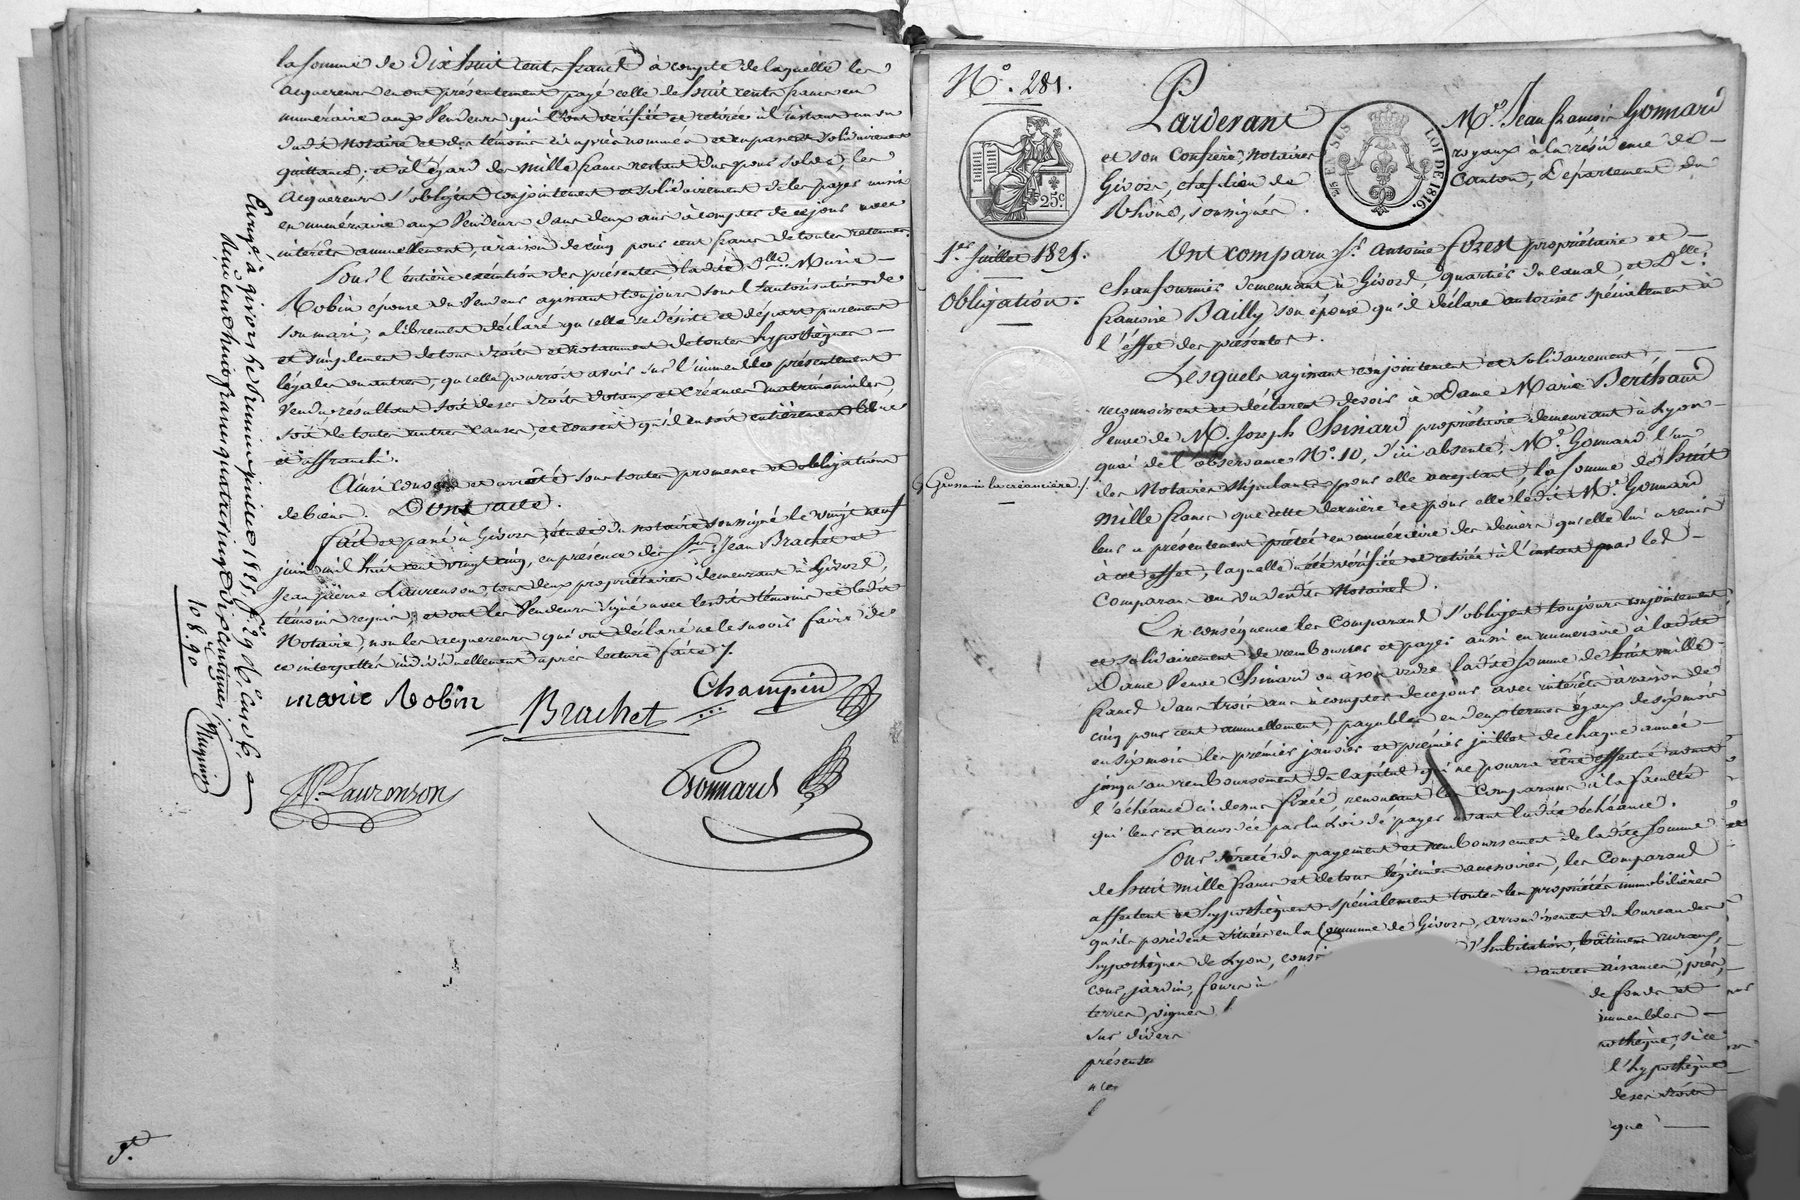 la somme de Dix huit cents francs à compte de laquelle les
acquereurs en ont présentement payé celle de huit cents francs en
numéraire aux Vendeurs qui l'ont vérifiée et retirée à l'instant au vu
dudit Notaire et des témoins ci après nommés et en passent solidairement
quittance; et à l'égard des mille francs restant dus pour solde, les
acquereurs s'obligent conjointement et solidairement de les payer aussi
en numéraire aux Vendeurs dans deux ans à compter de ce jour avec
intérêts annuellement, à raison de cinq pour cent francs de toutes retenues.
Sous l'entière exécution des présentes ladite D.lle Marie
Robin épouse du Vendeur agissant toujours sous l'autorisation de
son mari, a librement déclaré qu'elle se désiste et départ purement
et simplement de tous droits et notamment de toutes hypothèques
légales ou autres, qu'elle pourroit avoir sur l'immeuble présentement
Vendu résultant soit de ses droits dotaux et créances matrimoniales,
soit de toutes autres causes, et consent qu'il en soit entièrement libéré
et affranchi.
Ainsi convenu et arrêté sous toutes promesses et obligations
de biens. Dont acte.
fait et passé à Givors étude du notaire soussigné le vingt neuf
juin mil huit cent vingt cinq, en présence des Srs Jean Brachet et
Jean pierre Laurenson, tous deux propriétaires demeurant à Givors,
témoins requis, et ont les Vendeurs signé avec lesdits témoins et ledit
Notaire, non les acquereurs qui ont déclaré ne le savoir faire de
ce interpellés individuellement après lecture faite /.
marie Robin
Brachet
Champin
JP. Laurenson
Gonnard
Enreg.é à givors le juillet 1825, f.o 29
dix centimes
108.90
N.o 281.
1.er Juillet 1825.
Obligation.
Grosse à la créancière /.
25c.
25 EN SUS
LOI DE 1816.
Pardevant M.e Jean francois Gonnard
et son Confrère, Notaires royaux à la résidence de
Givors, chef lieu de Canton, Département du
Rhône, soussignés.
Ont comparu S.r Antoine forest propriétaire et
chaufournier demeurant à Givors, quartier du canal, et D.lle
francoise Bailly son épouse qu'il déclare autoriser spécialement à
l'effet des présentes.
Lesquels agissant conjointement et solidairement
reconnoissent et déclarent devoir à Dame Marie Berthaud
Veuve de M. Joseph Chinard propriétaire demeurant à Lyon
quai de l'observance N.o 10, d'ici absente, M.e Gonnard l'un
des Notaires stipulant pour elle acceptant, la somme de huit
mille francs que cette dernière et pour elle ledit M.e Gonnard
leur a présentement prêtée en numéraire des deniers qu'elle lui a remis
à cet effet, laquelle a été vérifiée et retirée à l'instant par les
Comparans au vu desdits Notaires.
En conséquence les Comparans s'obligent toujours conjointement
et solidairement de rembourser et payer aussi en numéraire à ladite
Dame Veuve Chinard ou à son ordre ladite somme de huit mille
francs dans trois ans à compter de ce jour avec intérêts à raison de
cinq pour cent annuellement, payables en deux termes égaux de six mois
en six mois les premier janvier et premier juillet de chaque année
jusqu'au remboursement du capital qui ne pourra être effectué avant
l'échéance ci dessus fixée, renoncant les Comparans à la faculté
qui leur est accordée par la Loi de payer avant ladite échéance.
Pour sûreté du payement et remboursement de ladite somme
de huit mille francs et de tous légitimes accessoires, les Comparans
affectent et hypothèquent spécialement toutes les propriétés immobilières
qu'ils possèdent situées en la Commune de Givors, arrondissement du bureau des
hypothèques de Lyon, d'habitation, bâtimens ruraux,
cour, jardin, fours à autres aisances, prés,
terres, vignes de fonds et
sur divers immeubles
présente
l'hypothèque
de ses droits
que